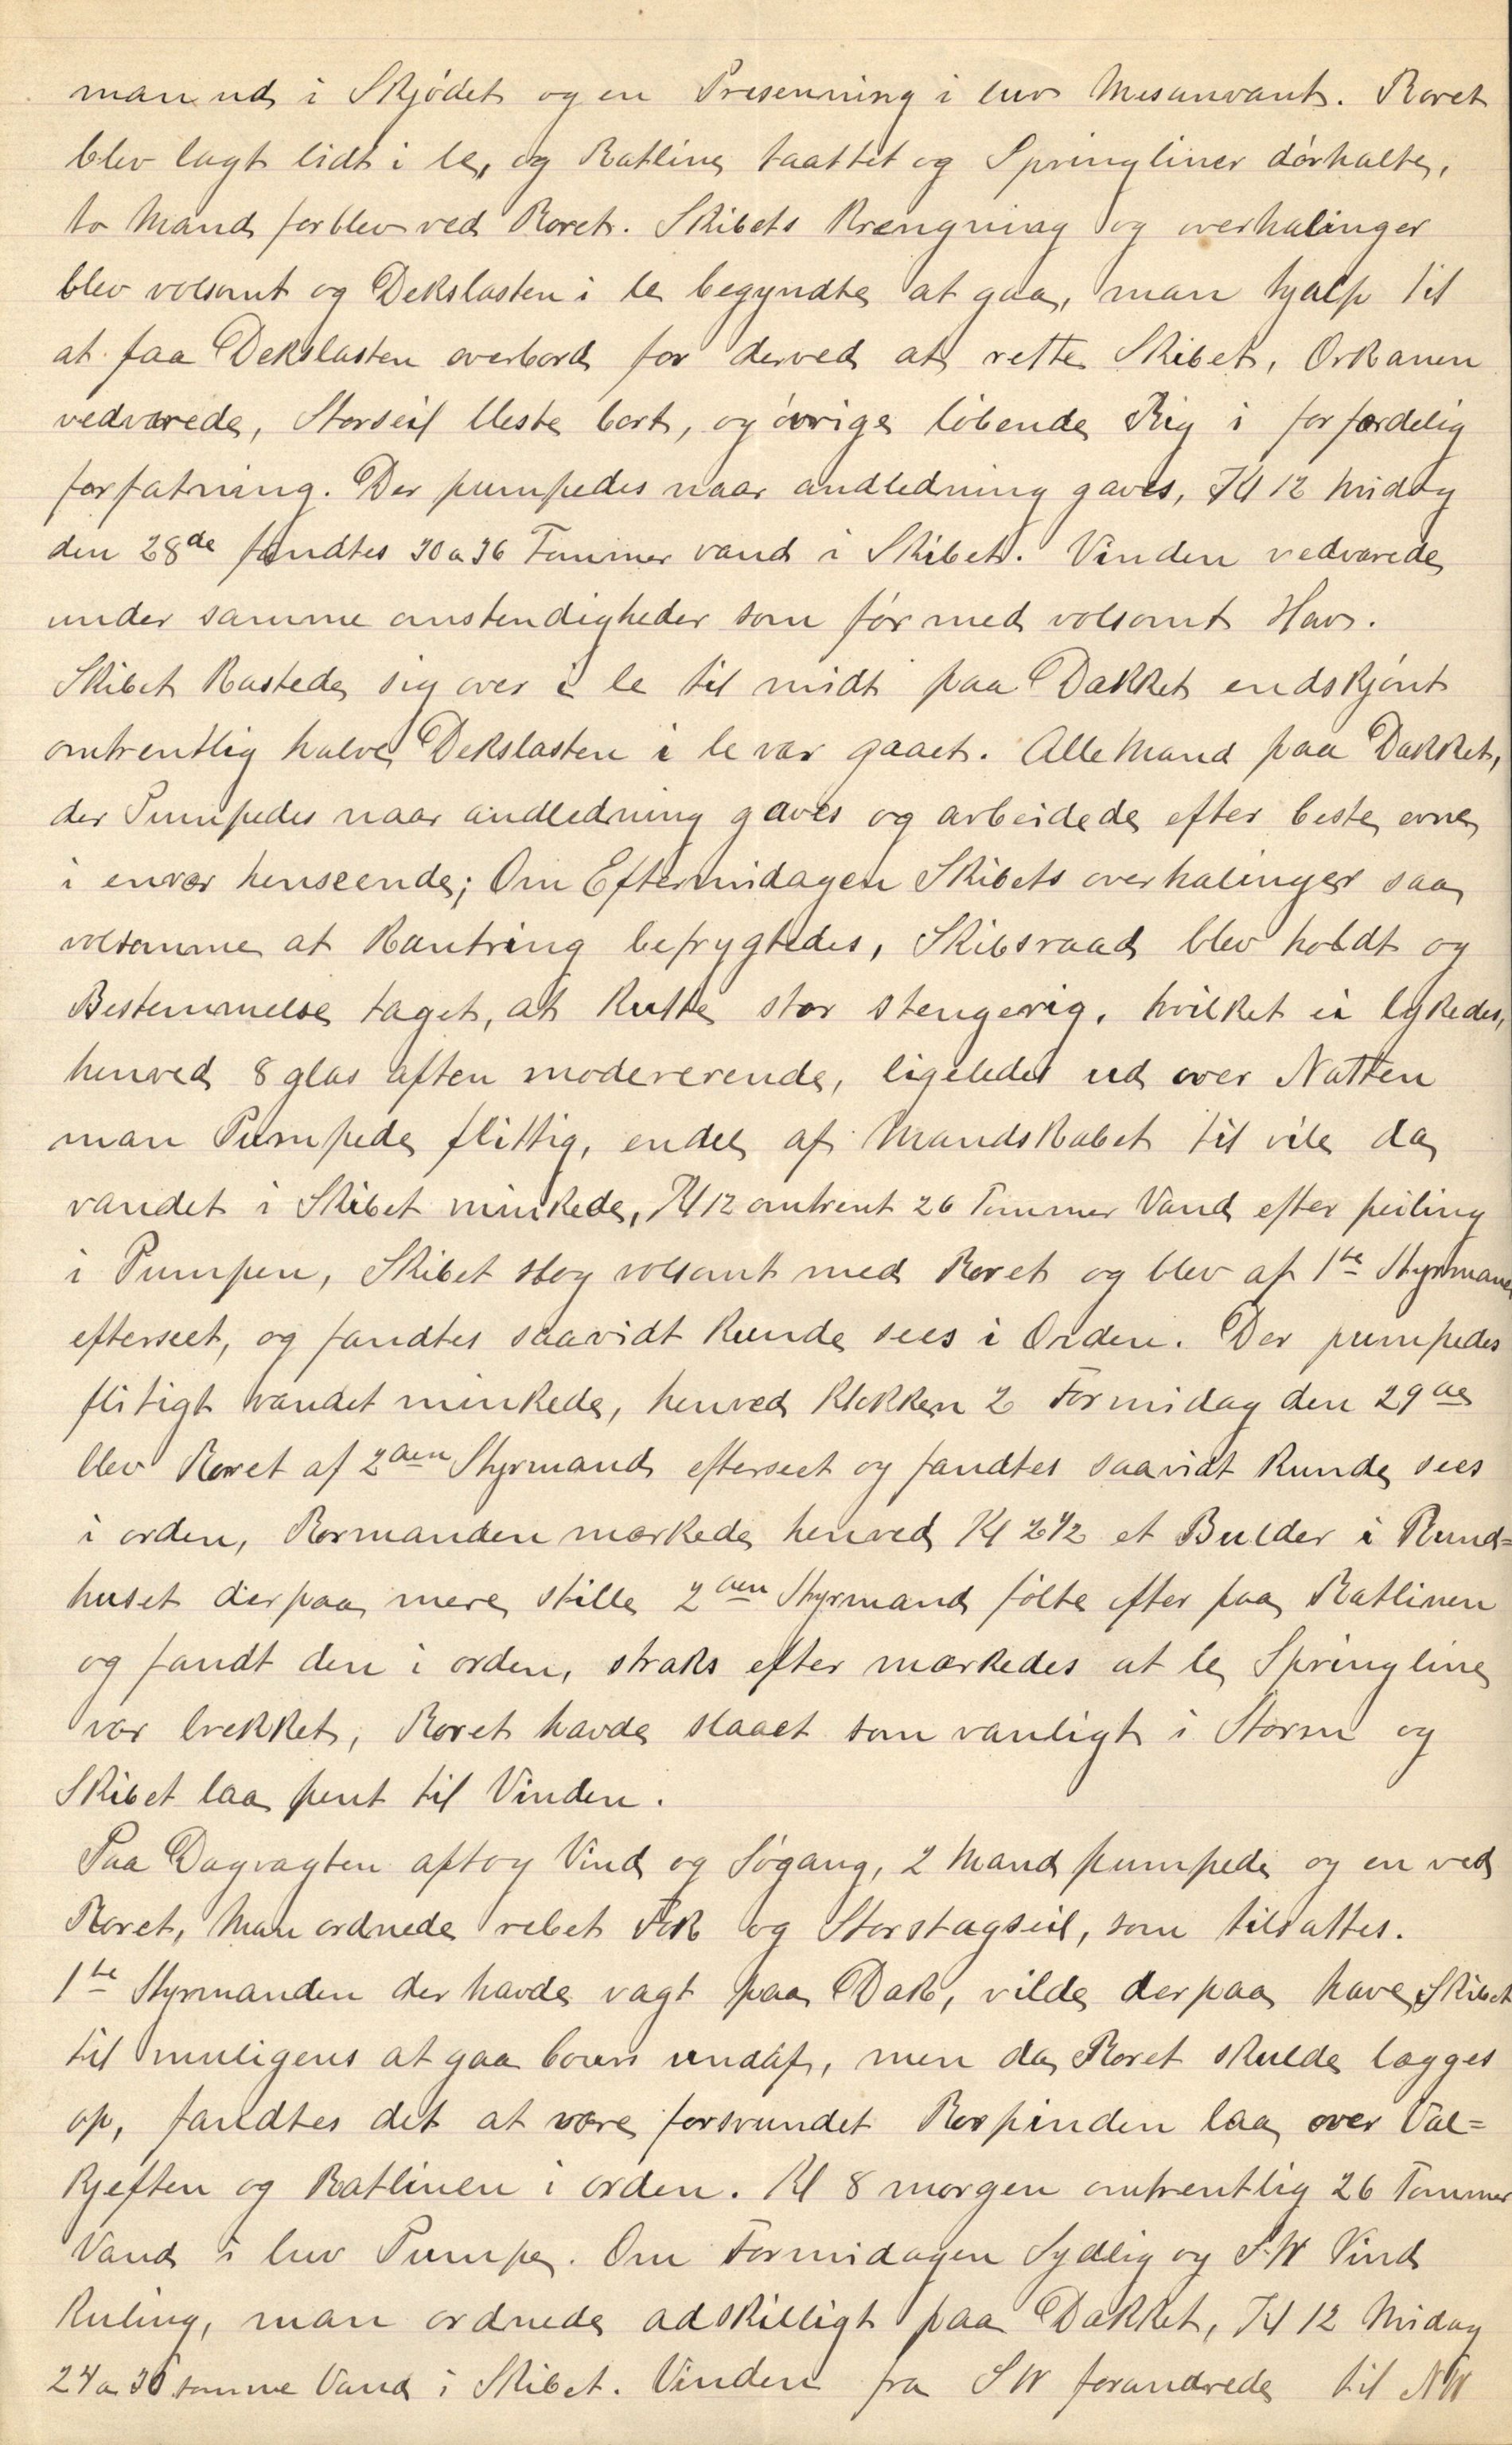 man ud i Skjødet og en Presenning i luv Mesanvant. Roret
blev lagt lidt i le, og Ratline taattet og Springliner dørhalte,
to Mand forblev ved Roret. Skibets Krengning og overhalinger
blev volsomt og Dekslasten i le begyndte at gaa, man hjalp til
at faa Dekslasten overbord for derved at rette Skibet, Orkanen
vedvarede, Storseil bleste bort, og øvrige løbende Rig i forfærdelig
forfatning. Der pumpedes naar andledning gaves, Kl 12 Midag
den 28de fandtes 30 a 36 Tommer vand i Skibet. Vinden vedvarede
under samme omstendigheder som før med volsomt Hav.
Skibet Kastede sig over i le til midt paa Dækket endskjønt
omtrentlig halve Dekslasten i le var gaaet. Alle Mand paa Dækket,
der Pumpedes naar andledning gaves og arbeidede efter beste evne
i enver henseende; Om Eftermidagen Skibets overhalinger saa
volsomme at Kantring befrygtedes, Skibsraad blev holdt og
Bestemmelse taget, at Kutte stor stengerig, hvilket ei lykedes,
henved 8 glas aften modererende, ligeledes ud over Natten
man Pumpede flittig, endel af Mandskabet til vile da
vandet i Skibet minkede, Kl 12 omtrent 26 Tommer Vand efter peiling
i Pumpen, Skibet slog volsomt med Roret og blev af 1te Styrmand
efterseet, og fandtes saavidt Kunde sees i Orden. Der pumpedes
flitigt vandet minkede, henved Klokken 2 Formidag den 29de
blev Roret af 2den Styrmand efterseet og fandtes saavidt Kunde sees
i orden, Rormanden mærkede henved Kl 2 1/2 et Bulder i Rund=
huset derpaa mere stille 2den Styrmand følte efter paa Ratlinen
og fandt den i orden, straks efter mærkedes at le Springline
var brekket, Roret havde slaaet som vanligt i Storm og
Skibet laa pent til Vinden.
Paa Dagvagten aftog Vind og Søgang, 2 Mand pumpede og en ved
Roret, Man ordnede rebet Fok og Storstagseil, som tilsattes.
1te Styrmanden der havde vagt paa Dæk, vilde derpaa have Skibet
til muligens at gaa bouvs undaf, men da Roret skulde lægges
op, fandtes det at være forsvundet Rorpinden laa over Val=
Kjeften og Ratlinen i orden. Kl 8 morgen omtrentlig 26 Tommer
Vand i luv Pumpe. Om Formidagen Sydlig og S.W Vind
Kuling, man ordnede adskilligt paa Dækket, Kl 12 Midag
24 a 30 tomme Vand i Skibet. Vinden fra SW forandrede til NW